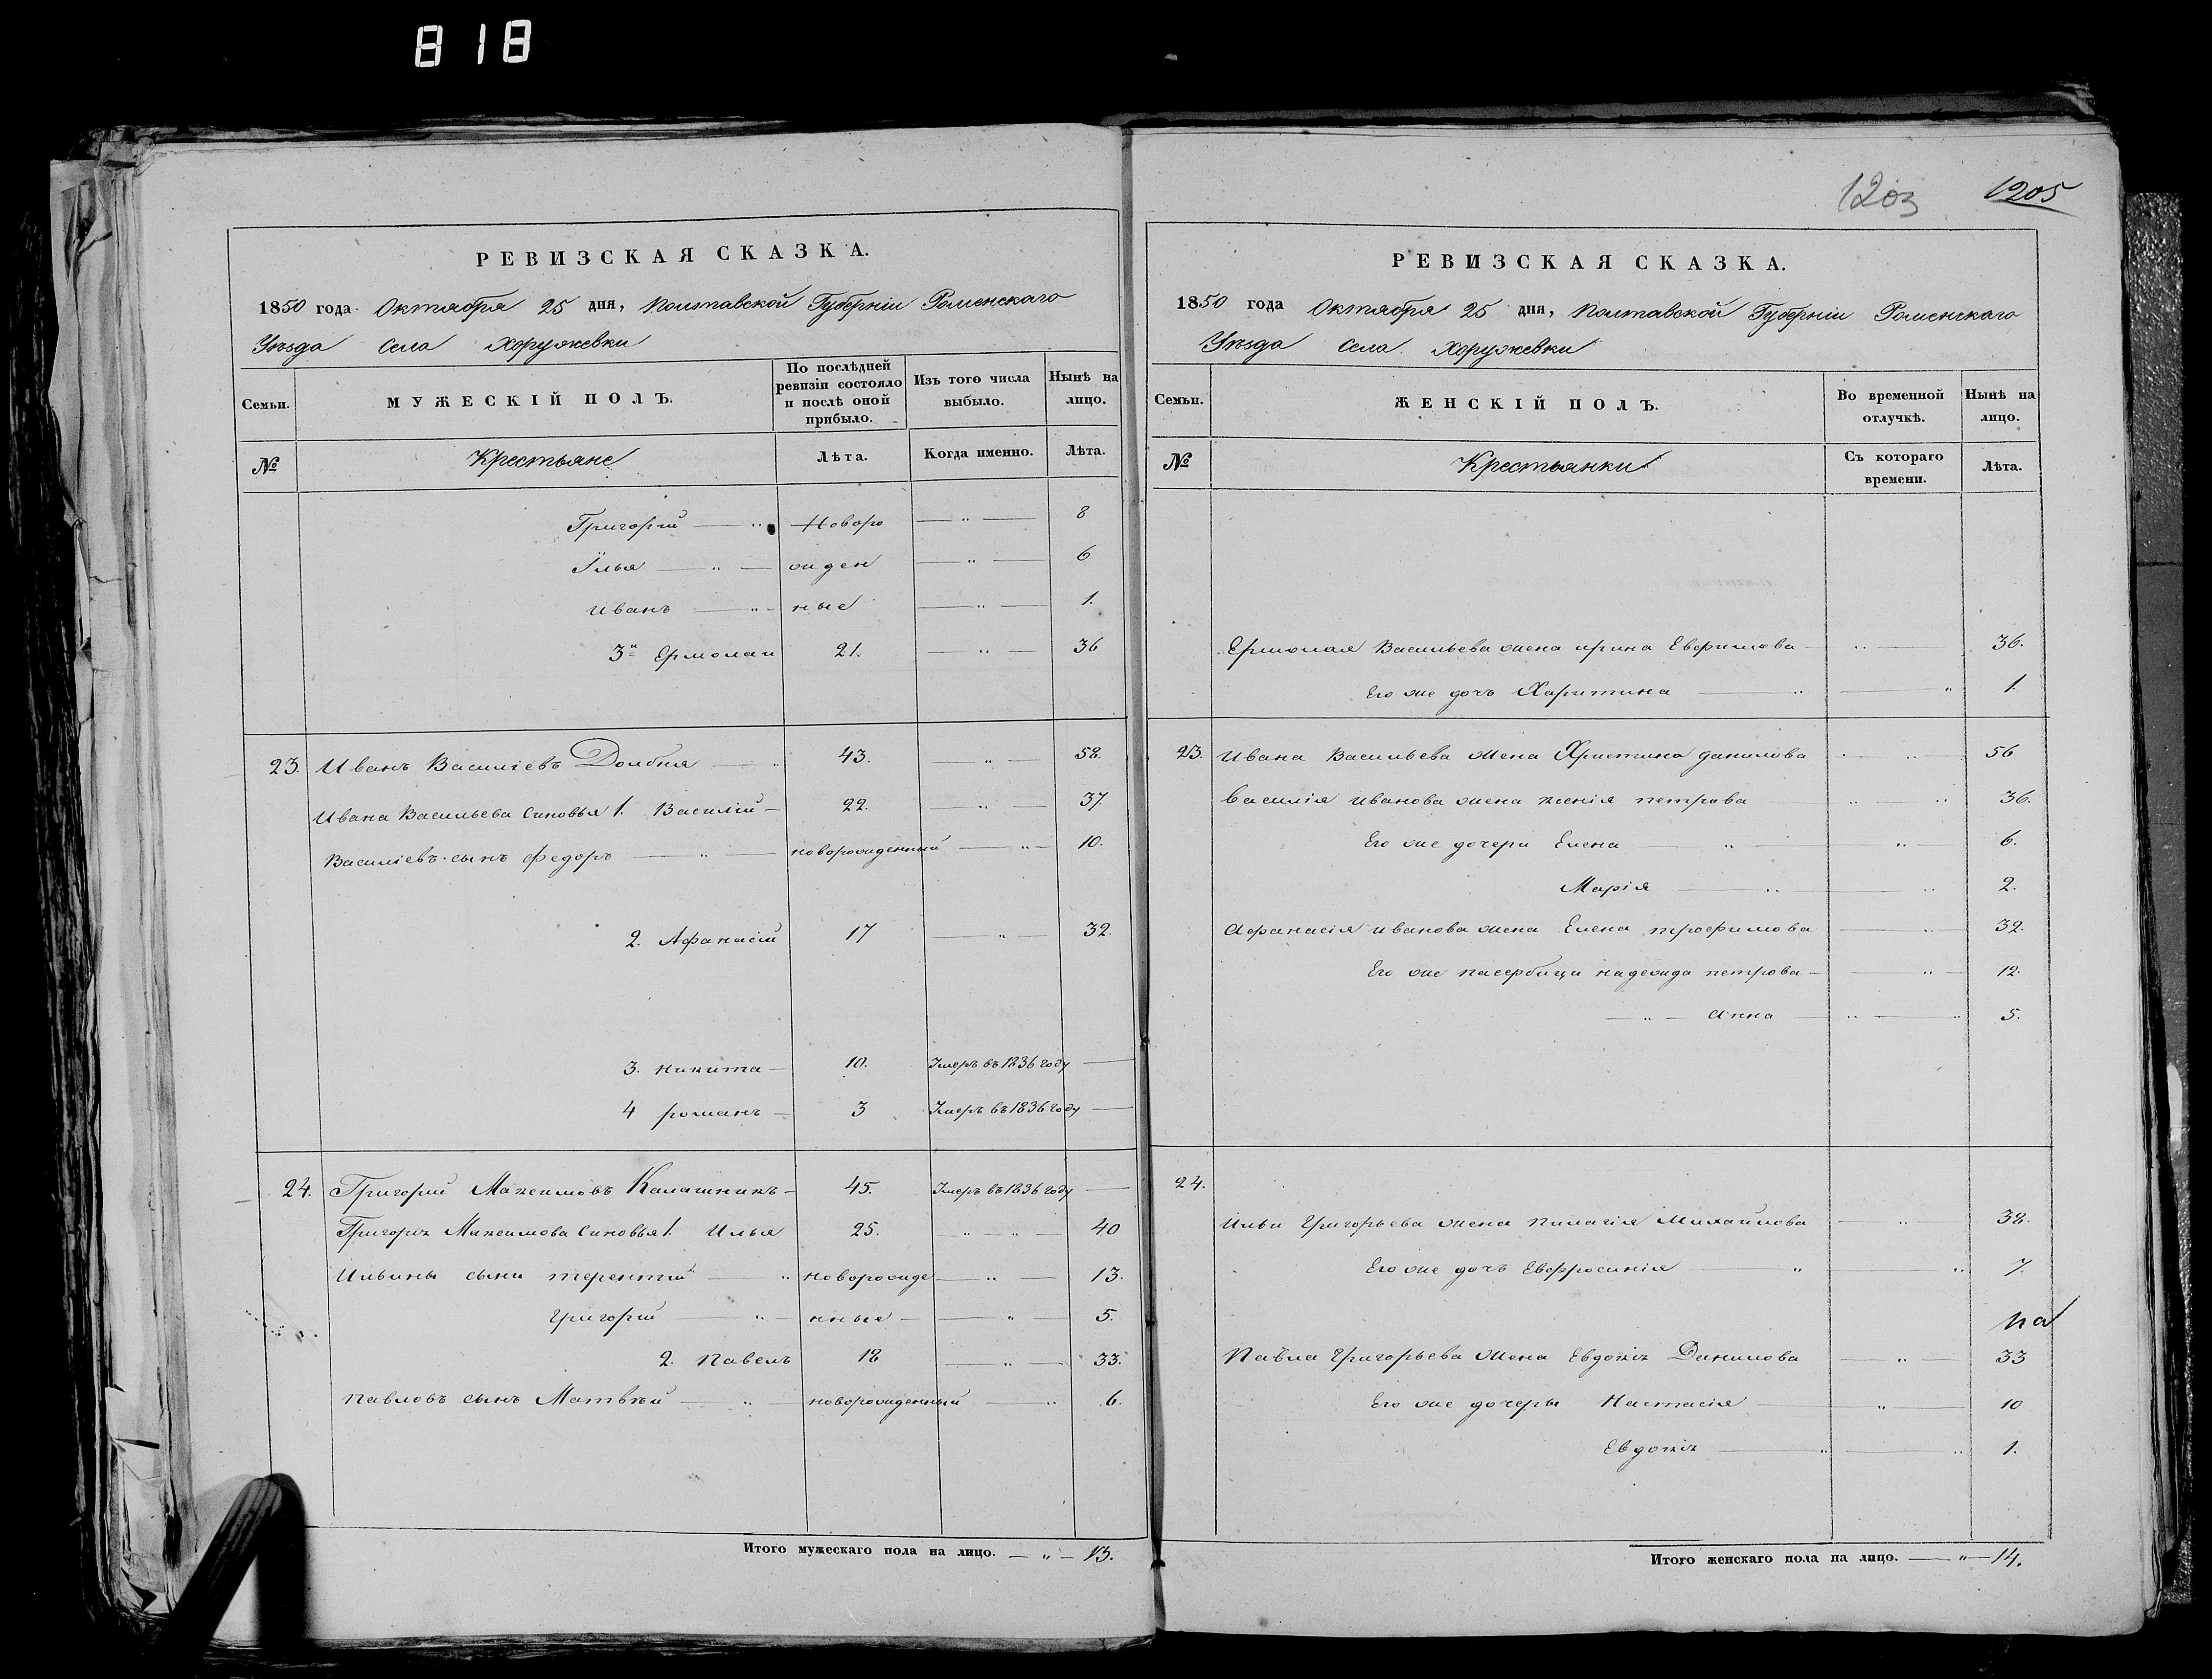 818
1203 1205
РЕВИЗСКАЯ СКАЗКА.
1850 года Октября 25 дня, Полтавской Губерніи Роменскаго
Уѣзда Села Хоружевки
Семьи. МУЖЕСКІЙ ПОЛЪ. По послѣдней ревизіи состояло и послѣ оной прибыло. Изъ того числа выбыло. Нынѣ на лицо.
№ Крестьяне Лѣта. Когда именно. Лѣта.
Григорій — " Новоро — " — 8
Илья — " — жден — " — 6
Иванъ — " — ные — " — 1.
3й Ермолай 21. — " — 36
23. Иванъ Василіевъ Долбня — " 43. — " — 58.
Ивана Васильева синовья 1. Василій — 22. — " — 37
Василіевъ сынъ Федоръ — " — новорожденный — " — 10.
2. Афанасій 17 — " — 32.
3. Никита — 10. Умеръ въ 1836 году —
4 романъ — 3 Умеръ въ 1836 году —
24. Григорій Максимовъ Калашникъ — 45. Умеръ въ 1836 году —
Григорія Максимова синовья 1. Илья 25. " — " — 40
Ильины сыни терентій — " новорожде — " — 13.
григорій — " — нные — — " — 5.
2. Павелъ 18 — " — 33.
Павловъ сынъ Матвѣй — " — новорожденный — " 6.
Итого мужескаго пола на лицо. — " — 13.
РЕВИЗСКАЯ СКАЗКА.
1850 года Октября 25 дня, Полтавской Губерніи Роменскаго
Уѣзда Села Хоружевки
Семьи. ЖЕНСКІЙ ПОЛЪ. Во временной отлучкѣ. Нынѣ на лицо.
№ Крестьянки Съ котораго времени. Лѣта.
Ермолая Васильева жена ирина Евфимова — " — 36.
Его же дочъ Харитина — " — " 1.
23. Ивана Васильева жена Христина данилова — " — 56
Василія иванова жена ксенія петрова " — " 36.
Его же дочери Елена — " — " — 6.
Марія — " — " 2.
Афанасія иванова жена Елена трофимова — " — 32.
Его же пасербици надежда петрова — — " — 12.
— " — Анна — " — " 5.
24.
Ильи Григорьева жена пилагія Михайлова — " — 38.
Его же дочъ Евфросинія — " — " 7.
Павла Григорьева жена Евдокія Данилова — " — 33
Его же дочеры Настасія — " — 10
Евдокія — " — " 1.
Итого женскаго пола на лицо. — " — 14.